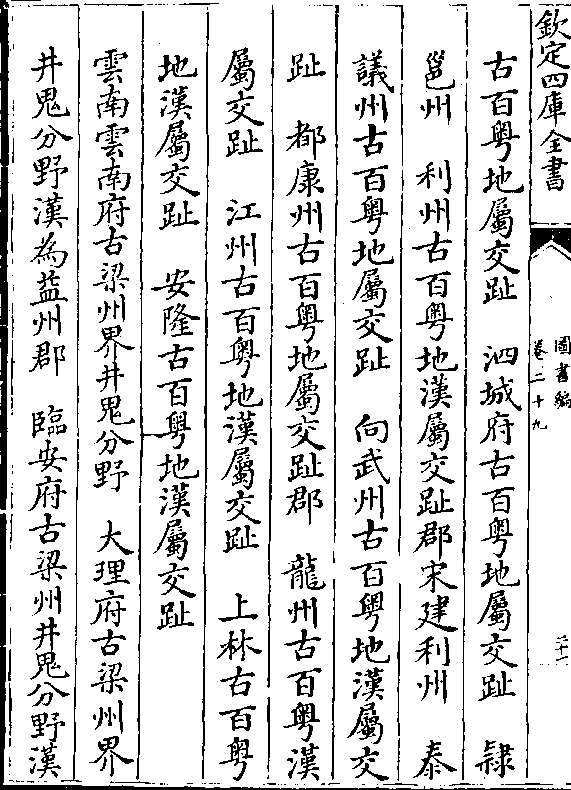 欽定四庫全書
圖書編
卷二十九
古百粤地屬交趾　泗城府古百粤地屬交趾　隸
邕州　利州古百粤地漢屬交趾郡宋建利州　泰
議州古百粤地屬交趾　向武州古百粤地漢屬交
趾　都康州古百粤地屬交趾郡　龍州古百粤漢
屬交趾　江州古百粤地漢屬交趾　上林古百粤
地漢屬交趾　安隆古百粤地漢屬交趾
雲南雲南府古梁州界井鬼分野　大理府古梁州界
井鬼分野漢為益州郡　臨安府古梁州井鬼分野漢